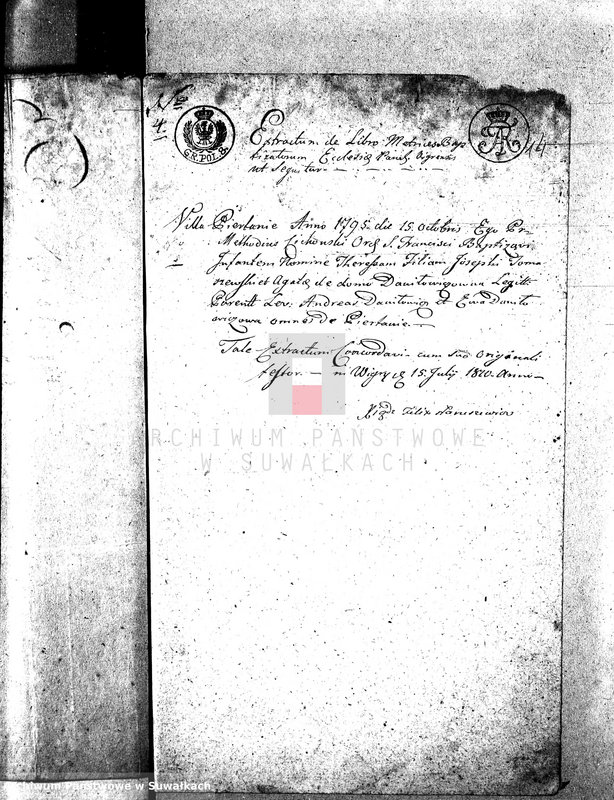 No
4.
GR. POL. 8.
14
Extractum de Libro Metrices Bap
tizatorum Ecclesiæ Paroch. Vigrensis
ut Sequitur
Villa Piertanie Anno 1795. die 15. octobris Ego Pr.
Methodius Cichowski Ord. S. Francisci Baptizavi
Infantem Nomine Theressam Filiam Josephi Toma
szewski et Agatæ de domo Daniłowiczowna Legitt.
Parentt. Lev. Andreas Daniłowicz et Ewa Daniło
wiczowa omnes de Piertanie.
Tale Extractum Concordari cum suo originali
testor. in Wigry 15. July 1820. Anno
Felix
ARCHIWUM PAŃSTWOWE
W SUWAŁKACH
Archiwum Państwowe w Suwałkach